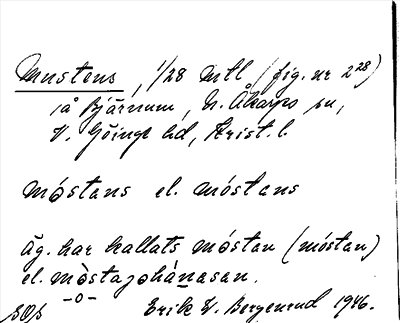 Mustens, 1/28 mtl (fig. nr 2²⁸)
på Bjärnum, N. Åkarps sn,
V. Göinge hd, Krist. l.
móstans el. móstens
Äg. har kallats móstan (móstan)
el. mòstajohànasan.
-o-
Erik W. Bergenrud 1946.